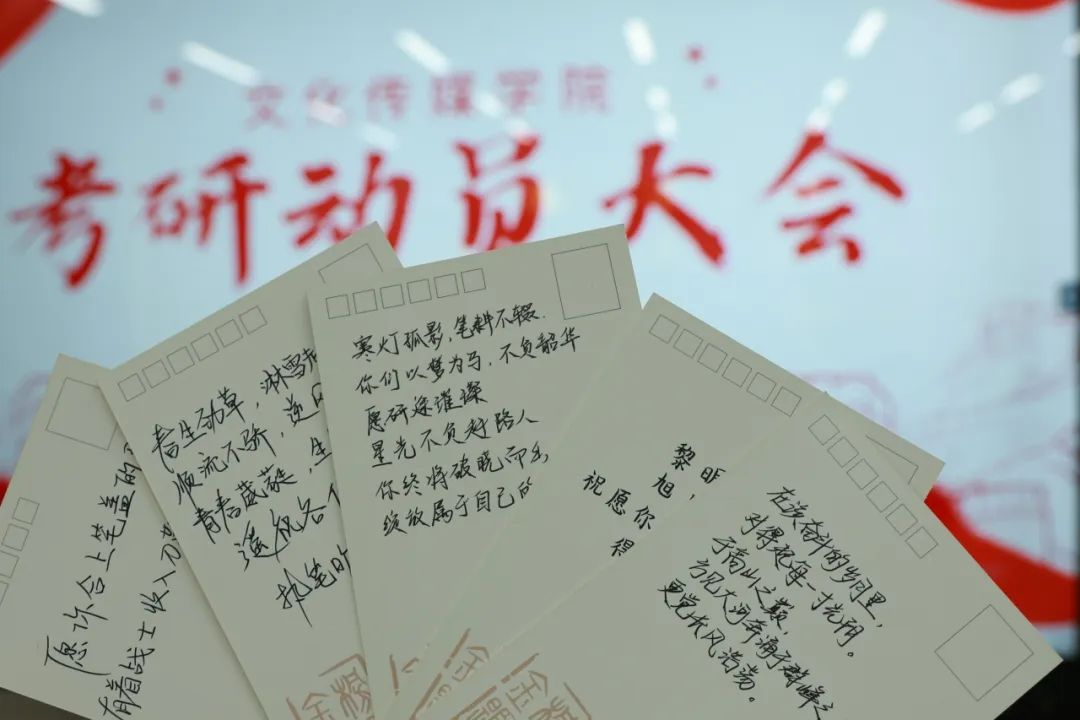 文化传媒学院
考研动员大会
愿你合上笔盖的
有着战士收入刀
春生劲草，淋雪
顺流不骄，逆
青春葳蕤，生
遥祝各
执笔
寒灯孤影，笔耕不辍.
你们以梦为马，不负韶华
愿研途璀璨
星光不负赶路人
你终将破晓而出
绽放属于自己的
黎昕
旭，
祝愿你
得
在该奋斗的岁月里，
对得起每一寸光阴。
于高山之巅，
方见大河奔涌于群峰之
更觉长风浩荡。